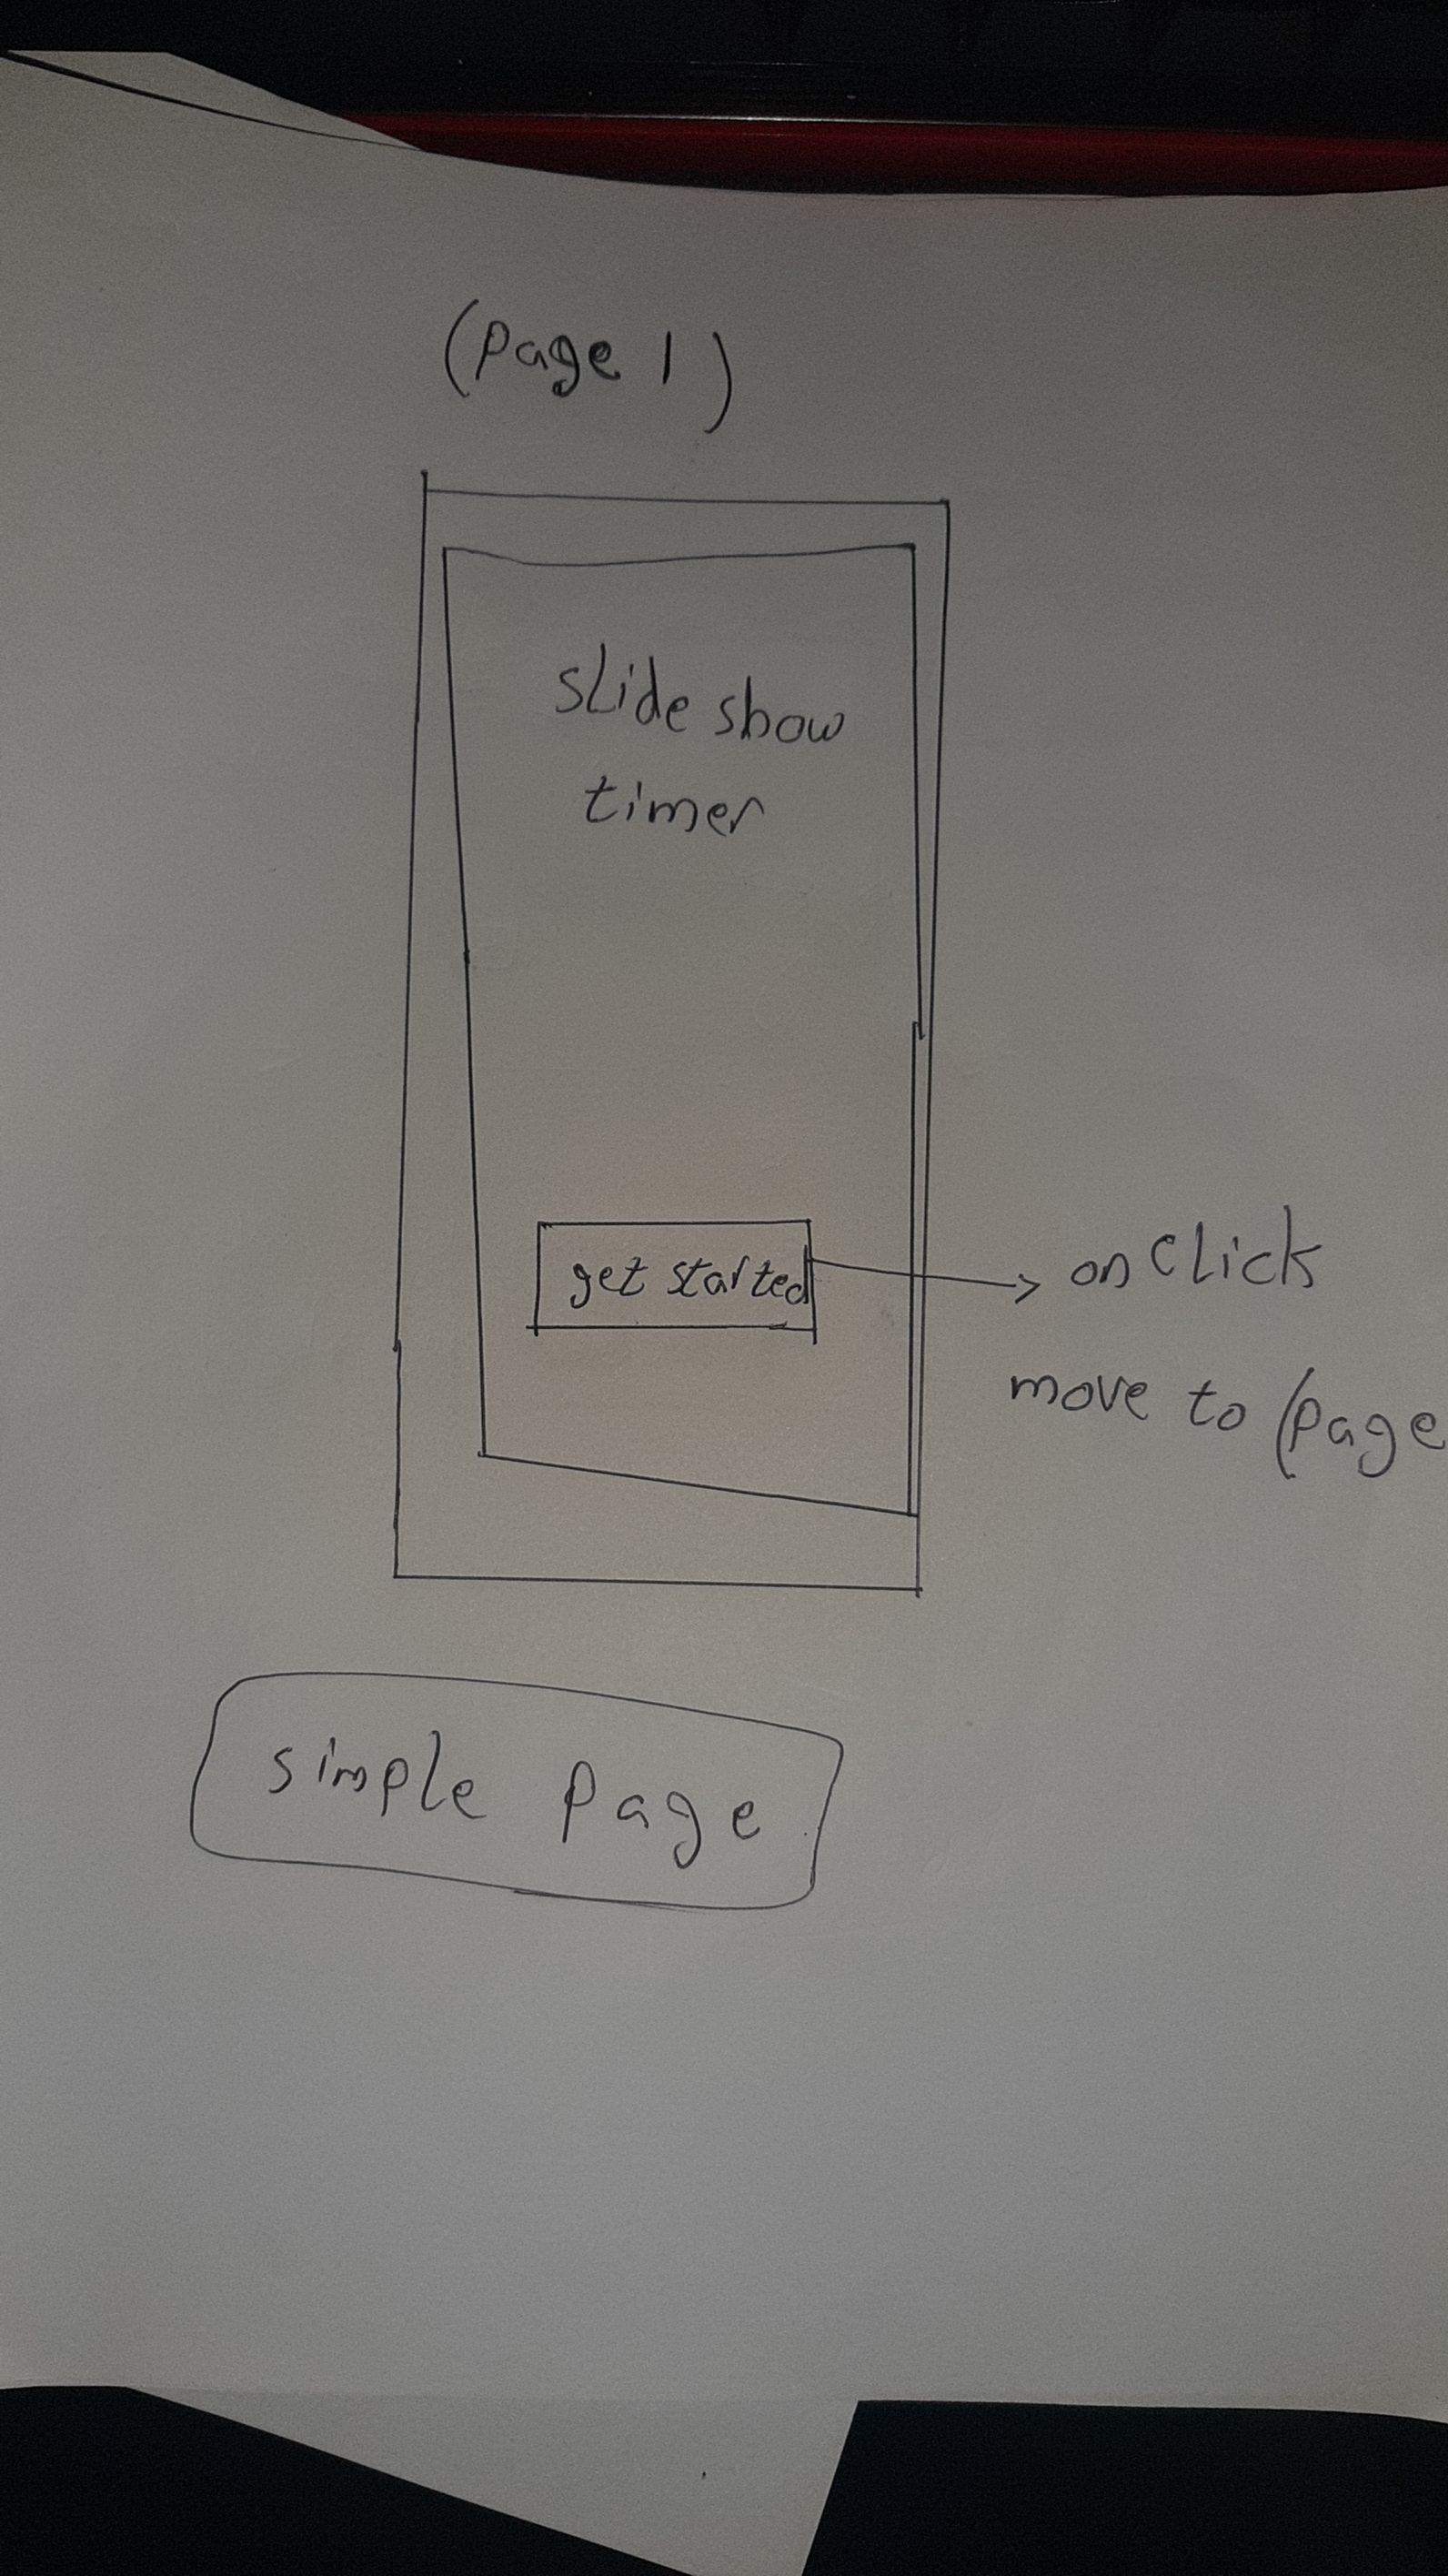 (page 1)
slide show
timer
get started
on click
move to (page
simple page